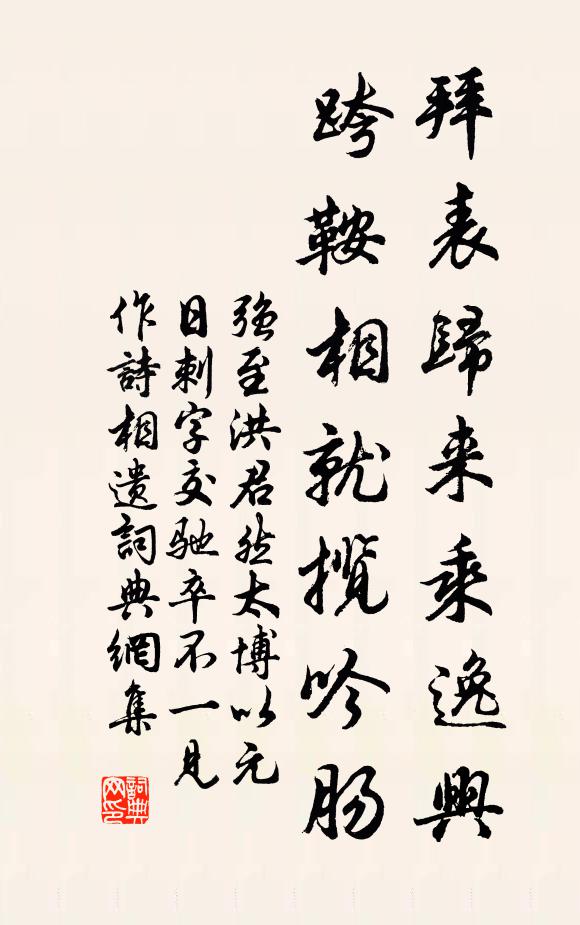 拜表歸来乘逸興
跨鞍相就攬吟肠
强至洪君然太博以元
日刺字交馳卒不一見
作詩相遺詞典網集
詞典网印